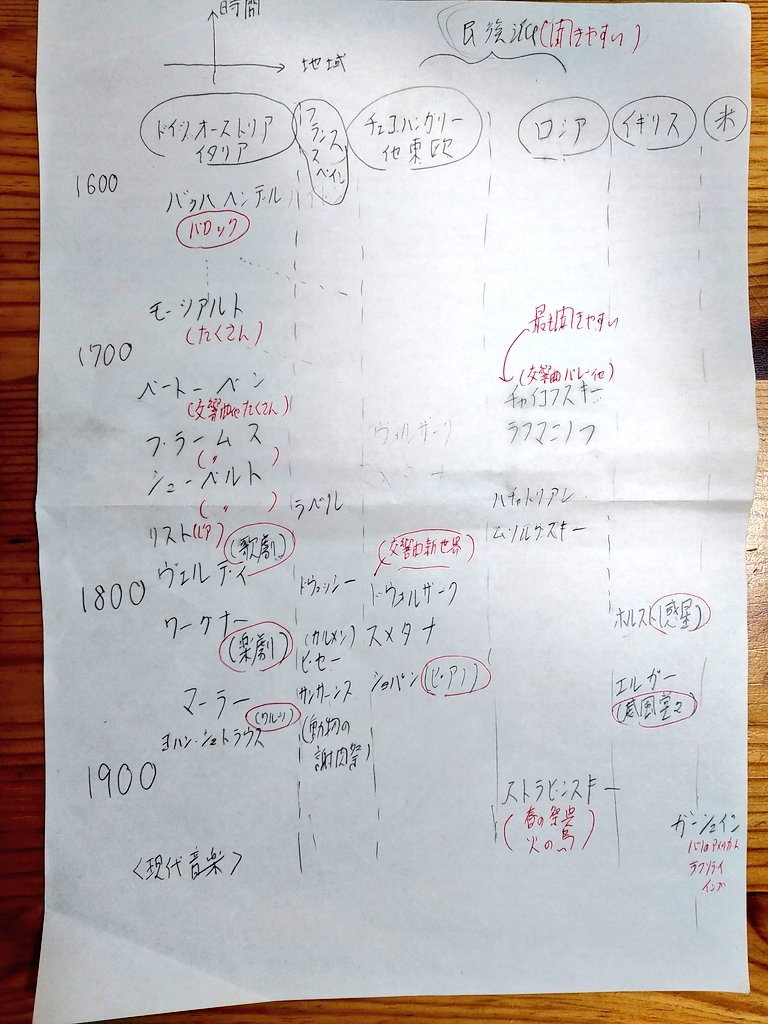 時間
地域
民族派(聞きやすい)
ドイツ.オーストリア
イタリア
フランス
スペイン
チェコ.ハンガリー
他東欧
ロシア
イギリス
米
1600
バッハ ヘンデル
バロック
モーツアルト
(たくさん)
1700
最も聞きやすい
ベートーベン
(交響曲他たくさん)
(交響曲バレー他)
チャイコフスキー
ブラームス
(〃)
ヴォルザーク
ラフマニノフ
シューベルト
(〃)
スメタナ
ラベル
ハチャトリアン
リスト(ピア)
(歌劇)
(交響曲新世界)
ムソルグスキー
ヴェルディ
1800
ドヴュッシー
ドヴォルザーク
ホルスト(惑星)
ワーグナー
(楽劇)
(カルメン)
ビゼー
スメタナ
サンサーンス
(動物の
謝肉祭)
ショパン(ピアノ)
エルガー
(威風堂々)
マーラー
(ワルツ)
ヨハン・シュトラウス
1900
ストラビンスキー
(春の祭典
火の鳥)
ガーシュイン
ラプソディ
インブ
<現代音楽>